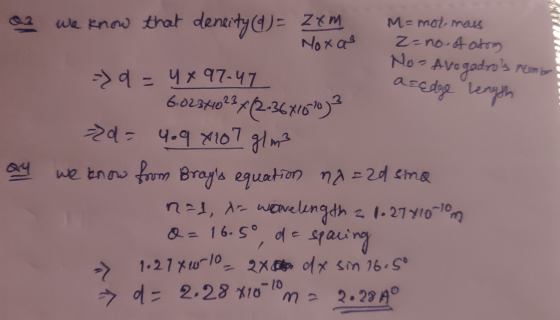 Q2 we know that density(d) = Z×M / No×a³
M = mol. mass
Z = no. of atom
No = Avogadro's number
a = Edge length
⇒ d = 4 × 97.47 / 6.023×10²³×(2.36×10⁻¹⁰)³
⇒ d = 4.9 ×10⁷ g/m³
Q4 we know from Bray's equation nλ = 2d sinθ
n = 1, λ = wavelength = 1.27×10⁻¹⁰ m
θ = 16.5°, d = spacing
⇒ 1.27×10⁻¹⁰ = 2× d× sin 16.5°
⇒ d = 2.28 ×10⁻¹⁰ m = 2.28 A°